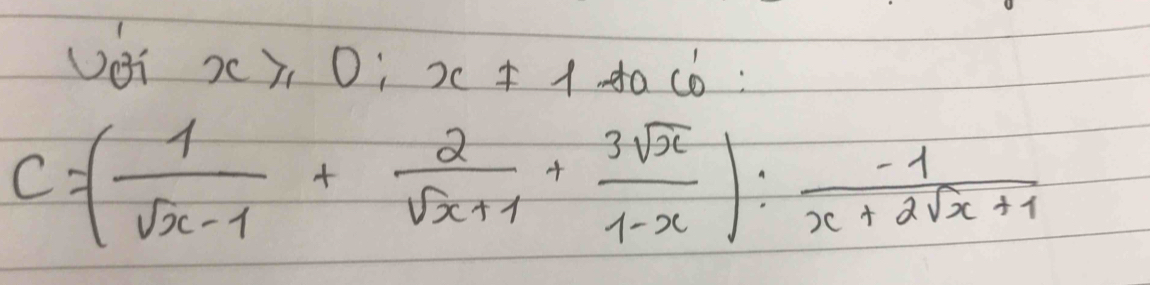 Với x ≥ 0; x ≠ 1 ta có:
C = (1/(√x - 1) + 2/(√x + 1) + 3√x/(1 - x)) : -1/(x + 2√x + 1)